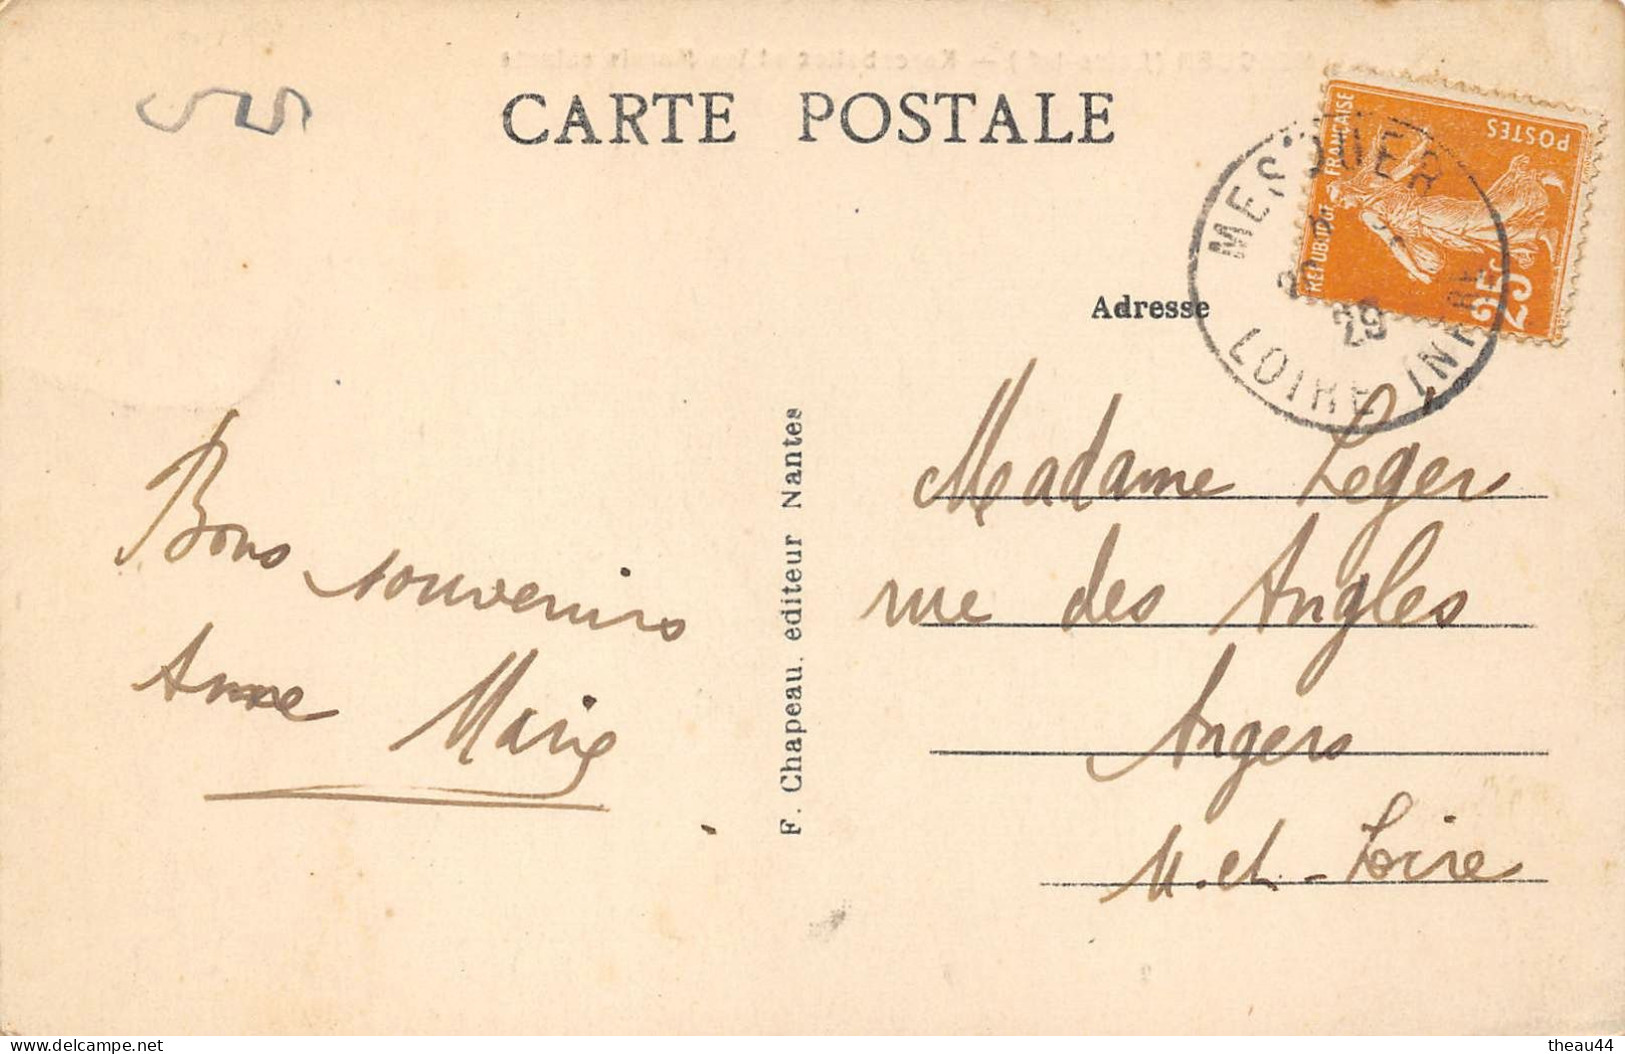 CARTE POSTALE
Adresse
REPUBLIQUE FRANÇAISE
POSTES
25c
MESQUER
29
LOIRE INFRE
Madame Leger
rue des Angles
Angers
M. et - Loire
Bons souvenirs
Anne Marie
F. Chapeau. editeur Nantes
delcampe.net
theau44